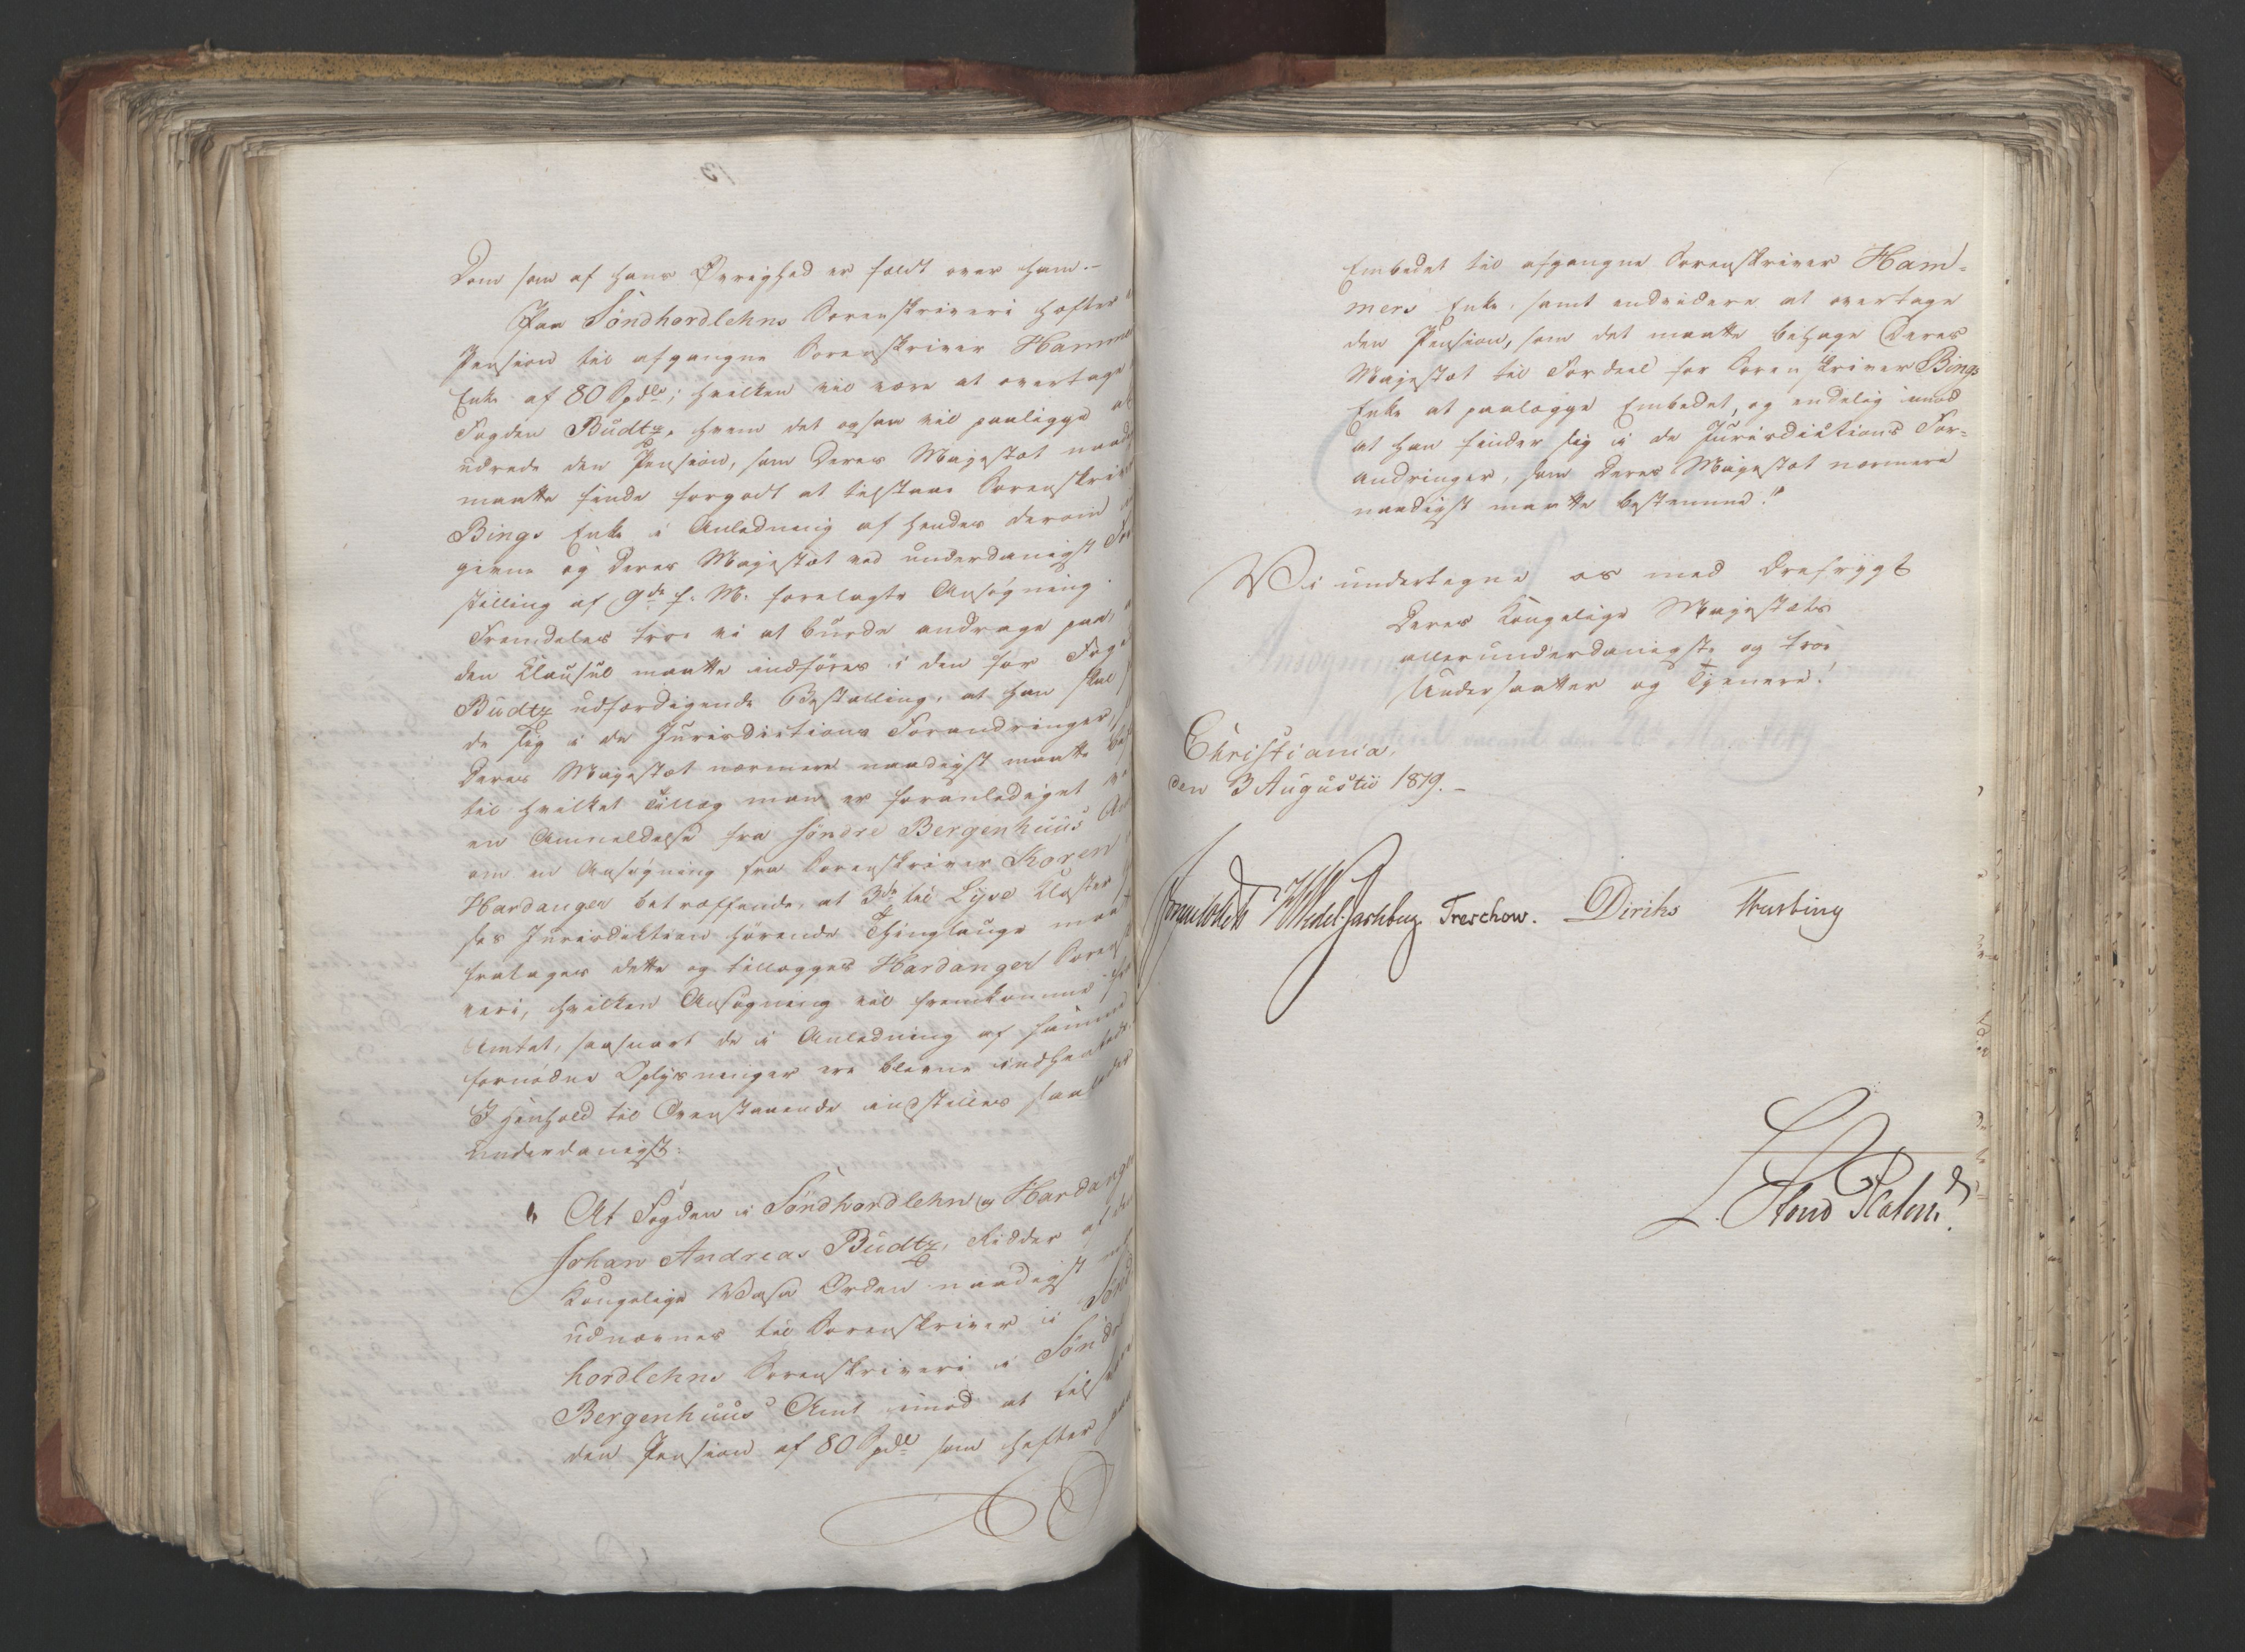 Dom som af hans Øvrighed er fældt over ham.-
Paa Söndhordlehns Sorenskriveri hefter
Pension til afgangne Sorenskriver Hammers
Enke af 80 Spdlr; hvilken vil være at overtage
Fogden Budtz, hvem det ogsaa vil paaligge at
udrede den Pension, som Deres Majestæt naadigst
maatte finde forgodt at tilstaae Sorenskriver
Bings Enke i Anledning af hendes derom
givne og Deres Majestæt ved underdanigst
stilling af 9de f. M. forelagte Ansøgning.
Fremdeles troe vi at burde andrage paa,
den Klausul maatte indføres i den for
Budtz udfærdigende Bestalling, at han skal
de sig i de Jurisdictions Forandringer,
Deres Majestæt nærmere naadigst maatte
til hvilket Tillæg man er foranlediget
en Anmeldelse fra söndre Bergenhuus
om en Ansøgning fra Sorenskriver Koren
Hardanger betræffende, at 3de til Lyse Kloster
ses Jurisdiktion hørende Thinglauge
fratages dette og tillægges Hardanger
veri, hvilken Ansøgning vil fremkomme fra
Amtet, saasnart de i Anledning af samme
fornødne Oplysninger ere blevne indhentede.
I Henhold til Ovenstaaende indstilles saaledes
underdanigst:
" At Fogden i Söndhordlehn og Hardanger
Johan Andreas Budtz, Ridder af det
Kongelige Wasa Orden naadigst
udnævnes til Sorenskriver i Sönd
hordlehns Sorenskriveri i Söndre
Bergenhuus Amt imod at
den Pension af 80 Spdlr som hefter paa
Embedet til afgangne Sorenskriver Ham-
mers Enke, samt endvidere at overtage
den Pension, som det maatte behage Deres
Majestæt til Fordeel for Sorenskriver Bings
Enke at paalægge Embedet, og endelig imod
at han finder sig i de Jurisdictions For-
andringer, som Deres Majestæt nærmere
naadigst maatte bestemme."
Vi undertegne os med Ærefrygt
Deres Kongelige Majestæts
allerunderdanigste og troe
Undersaatter og Tjenere!
Christiania,
den 3 Augusti 1819.-
Wedel-Jarlsberg Treschow. Diriks